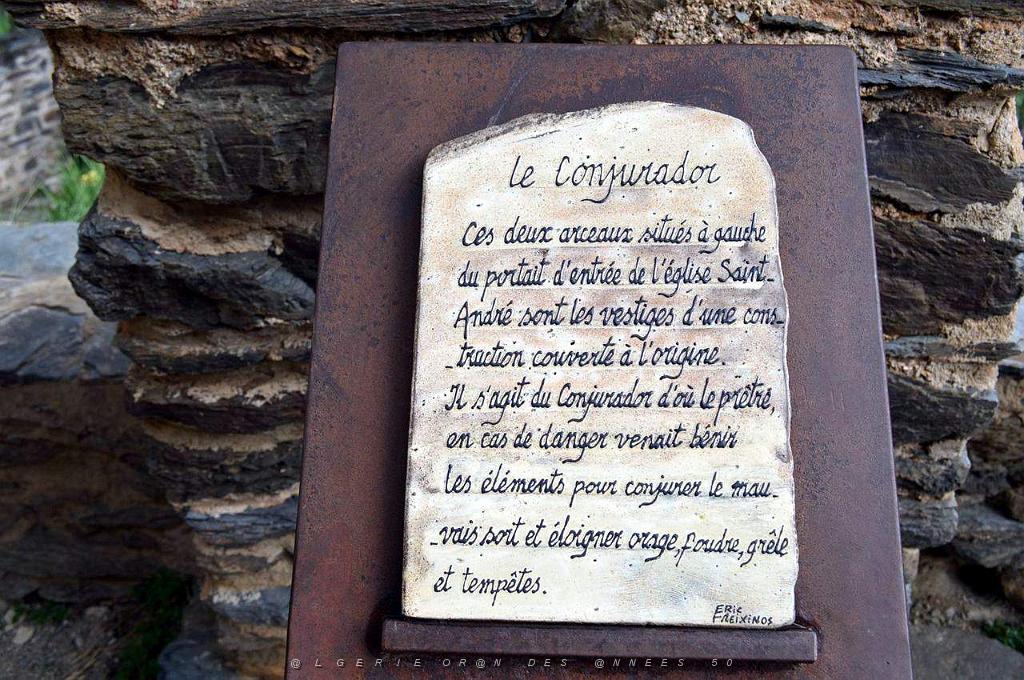 Le Conjurador
Ces deux arceaux situés à gauche
du portait d'entrée de l'église Saint-
André sont les vestiges d'une cons-
-truction couverte à l'origine.
Il s'agit du Conjurador d'où le prêtre,
en cas de danger venait bénir
les éléments pour conjurer le mau-
-vais sort et éloigner orage, foudre, grêle
et tempêtes.
ERIC
FREIXINOS
@LGERIE OR@N DES @NNEES 50